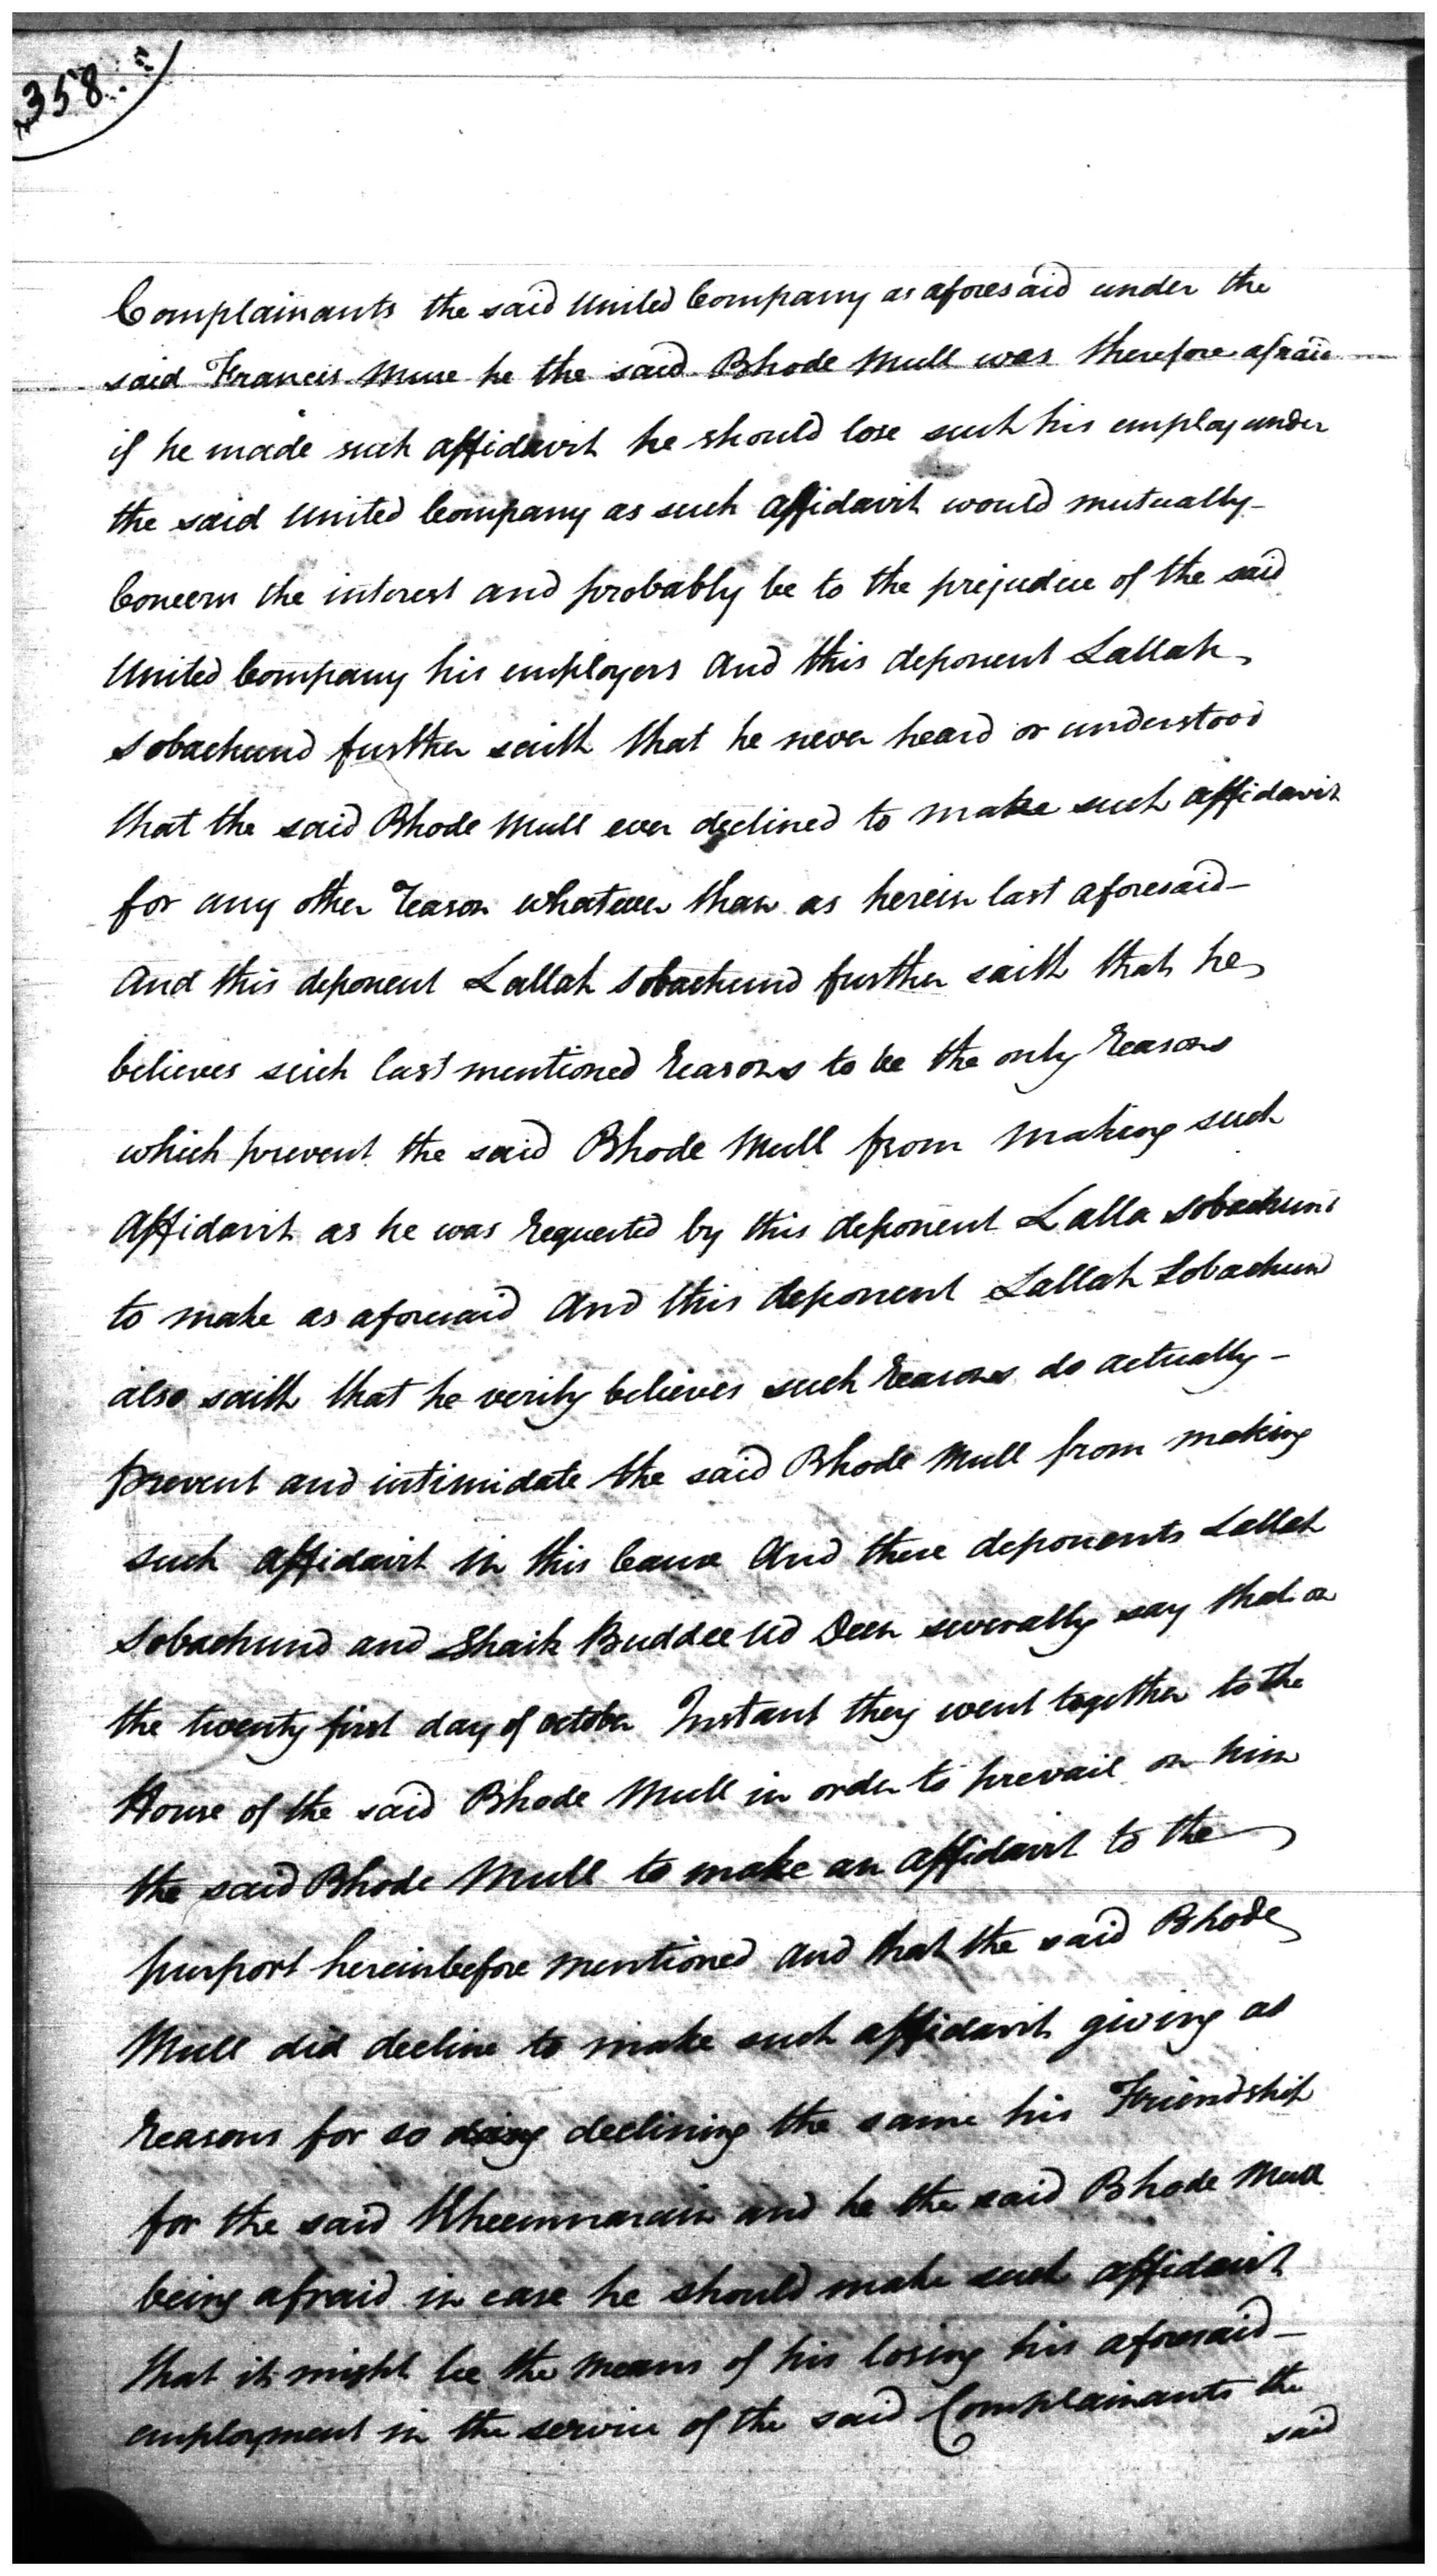 358
Complainants the said United Company as aforesaid under the
said Francis Mure he the said Bhode Mull was therefore afraid
if he made such affidavit he should lose such his employ under
the said United Company as such affidavit would mutually
Concern the interest and probably be to the prejudice of the said
United Company his employers And this deponent Lallah
Sobachund further saith that he never heard or understood
that the said Bhode Mull ever declined to make such affidavit
for any other reason whatever than as herein last aforesaid
And this deponent Lallah Sobachund further saith that he
believes such last mentioned reasons to be the only reasons
which prevent the said Bhode Mull from making such
Affidavit as he was requested by this deponent Lalla Sobachund
to make as aforesaid And this deponent Lallah Sobachund
also saith that he verily believes such reasons do actually
prevent and intimidate the said Bhode Mull from making
such affidavit in this Cause And these deponents Lallah
Sobachund and Shaik Buddee ud Deen severally say that on
the twenty first day of October Instant they went together to the
House of the said Bhode Mull in order to prevail on him
the said Bhode Mull to make an affidavit to the
purport hereinbefore mentioned and that the said Bhode
Mull did decline to make such affidavit giving as
reasons for so doing declining the same his Friendship
for the said Kheemnarain and he the said Bhode Mull
being afraid in case he should make such affidavit
that it might be the means of his losing his aforesaid
employment in the service of the said Complainants the
said